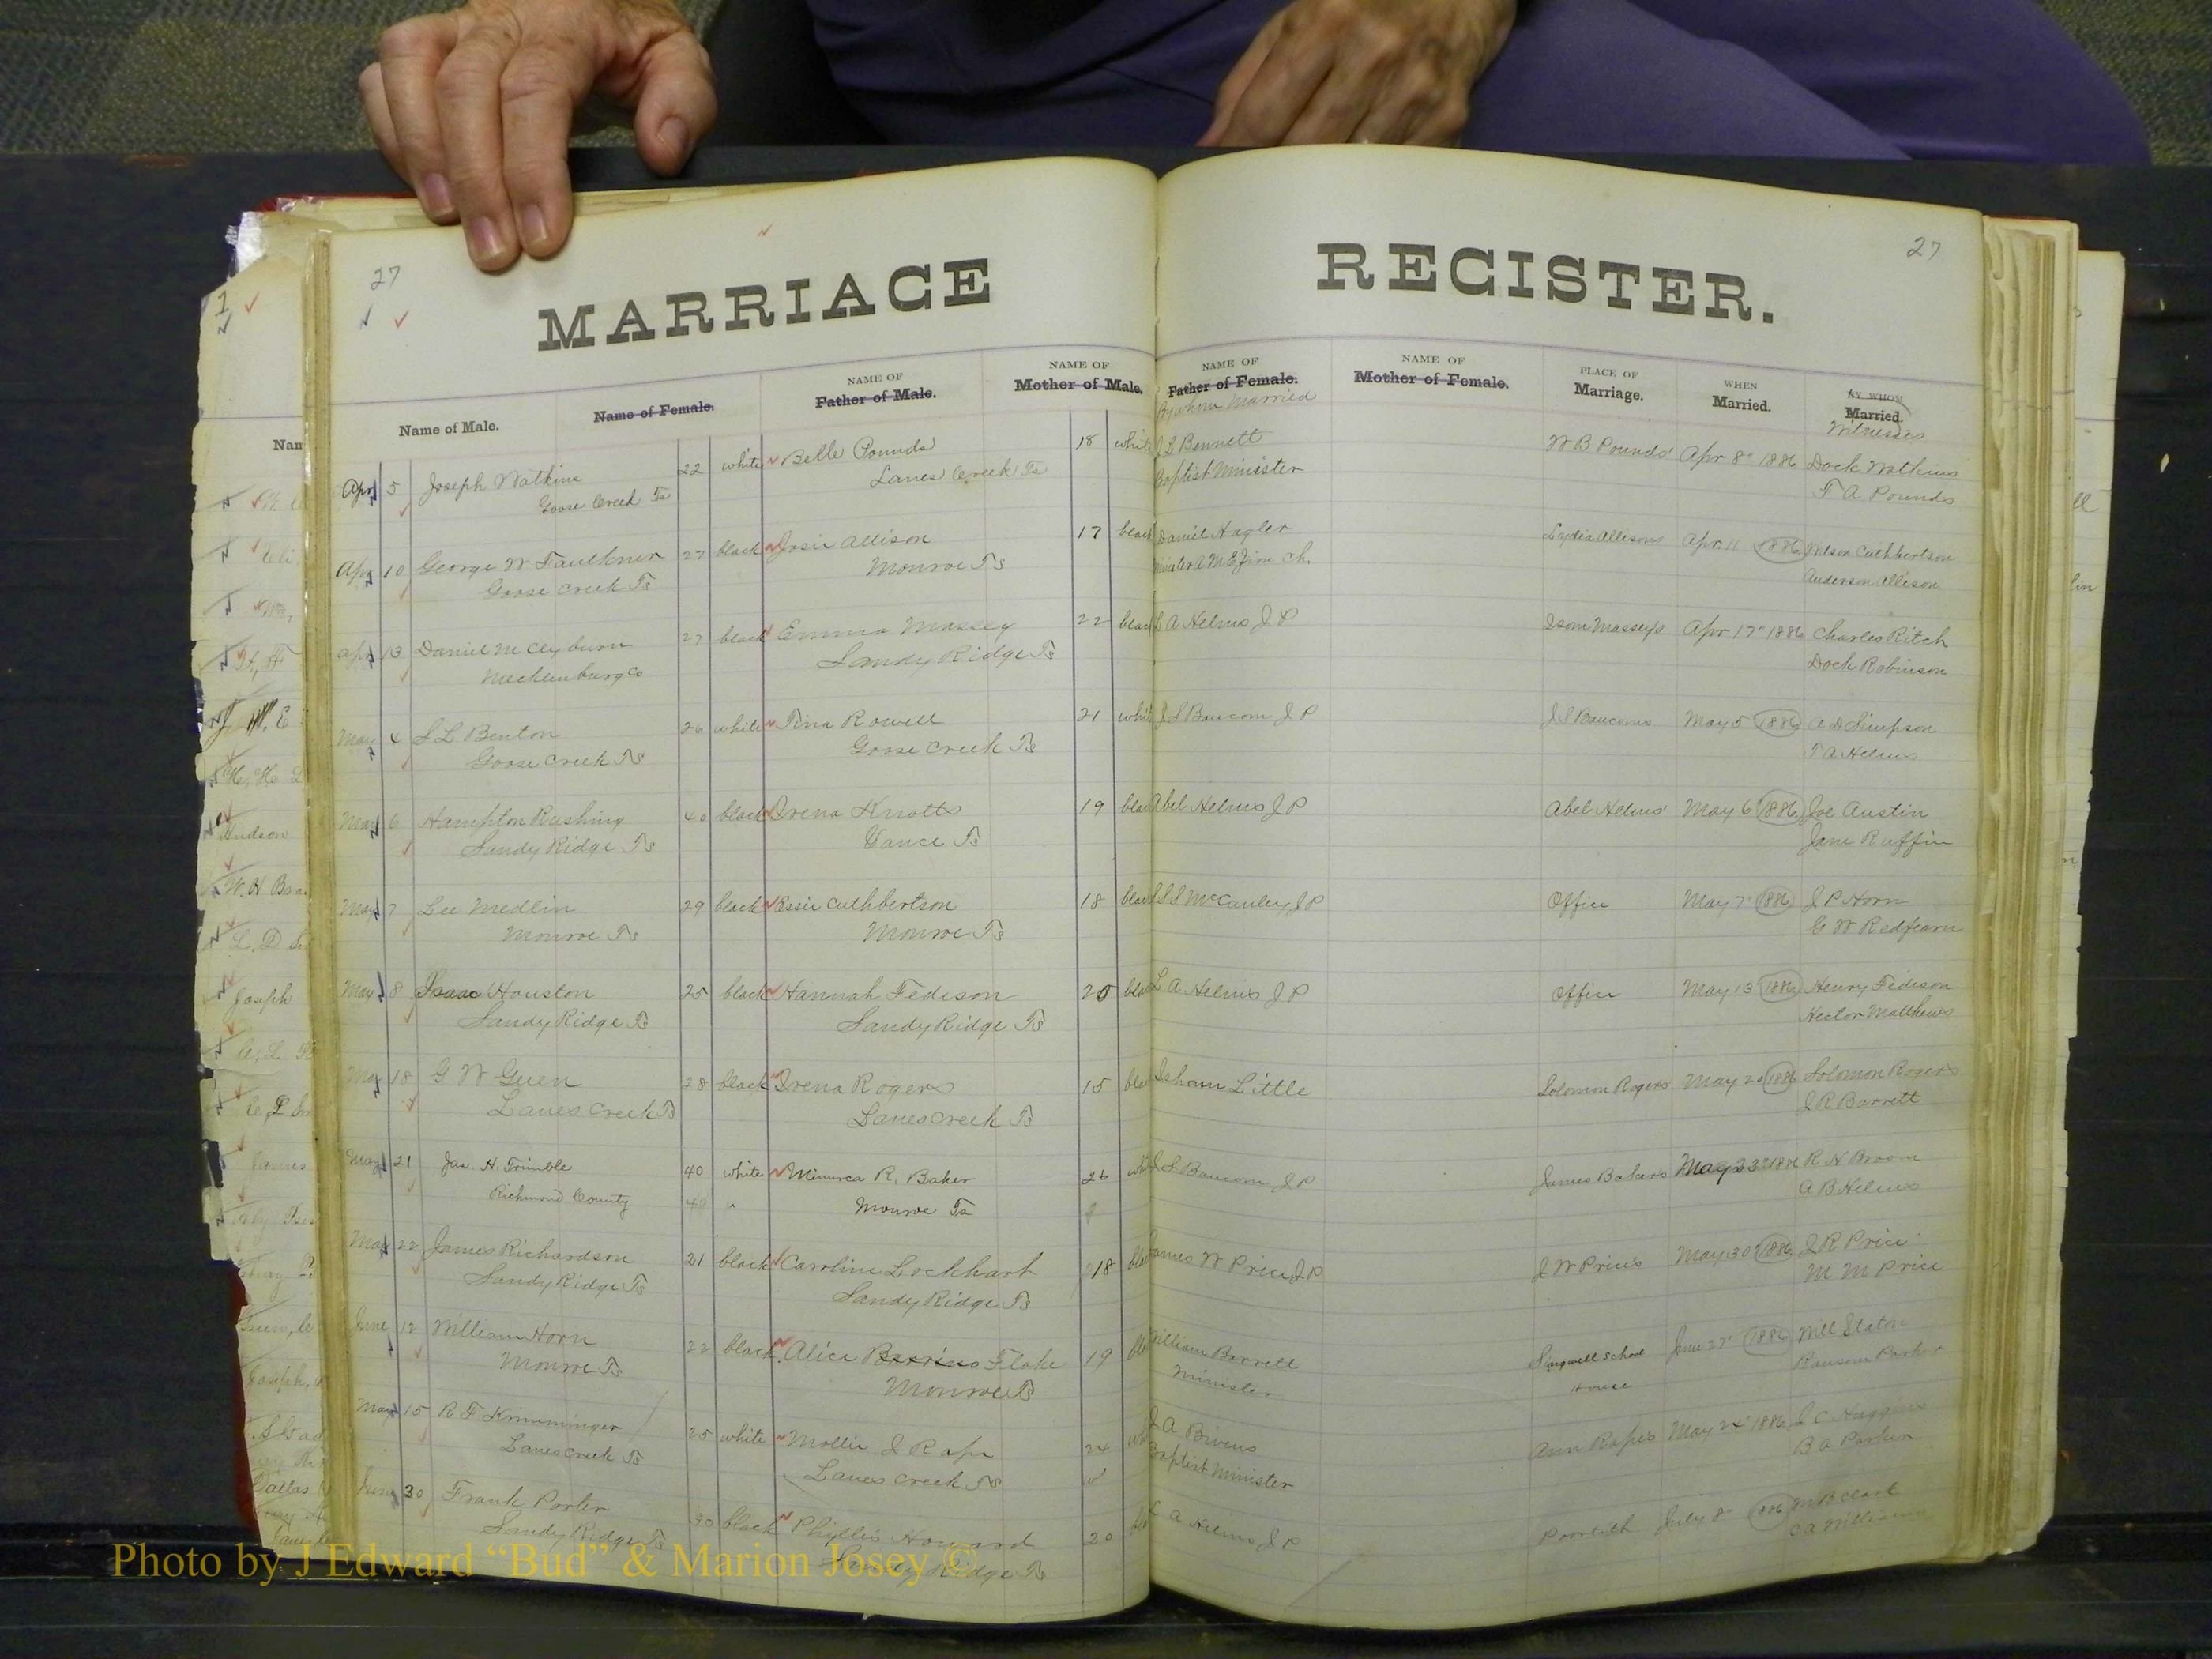 27
27
MARRIAGE REGISTER.
Name of Male.
Name of Female.
NAME OF
Father of Male.
NAME OF
Mother of Male.
NAME OF
Father of Female.
By whom Married
NAME OF
Mother of Female.
PLACE OF
Marriage.
WHEN
Married.
BY WHOM
Married.
Witnesses
Apr 5 Joseph Watkins 22 white Belle Pounds 18 white J L Bennett W B Pounds' Apr 8" 1886 Dock Watkins
Goose Creek Ts Lanes Creek Ts Baptist Minister T A Pounds
Apr 10 George W Faulkner 27 black Josie Allison 17 black Daniel Hagler Lydia Allisons Apr 11 1886 Wilson Cuthbertson
Goose Creek Ts Monroe Ts Minister A M E Zion Ch. Anderson Allison
Apr 13 Daniel McClyburn 27 black Emma Massey 22 black L A Helms J P Isom Massey's Apr 17" 1886 Charles Ritch
Mecklenburg Co Sandy Ridge Ts Dock Robinson
May 4 S L Benton 26 white Tina Rowell 21 white J S Baucom J P J S Baucoms May 5 1886 A D Simpson
Goose Creek Ts Goose Creek Ts T A Helms
May 6 Hampton Rushing 40 black Irena Knotts 19 black Abel Helms J P Abel Helms' May 6 1886 Joe Austin
Sandy Ridge Ts Vance Ts Jane Ruffin
May 7 Lee Medlin 29 black Essie Cuthbertson 18 black S S S McCauley J P Office May 7" 1886 J P Horn
Monroe Ts Monroe Ts G W Redfearn
May 8 Isaac Houston 25 black Hannah Fedison 20 black L A Helms J P Office May 13 1886 Henry Fedison
Sandy Ridge Ts Sandy Ridge Ts Hector Matthews
May 18 G W Guen 28 black Irena Rogers 15 black Isham Little Solomon Rogers May 20 1886 Solomon Rogers
Lanes Creek Ts Lanes Creek Ts J R Barrett
May 21 Jas. H. Trimble 40 white Minurca R. Baker 26 white J S Baucom J P James Bakers May 23" 1886 R H Broom
Richmond County 40 " Monroe Ts A B Helms
May 22 James Richardson 21 black Caroline Lockhart 18 black James W Price J P J W Price's May 30" 1886 J R Price
Sandy Ridge Ts Sandy Ridge Ts M M Price
June 12 William Horn 22 black Alice Perrins Flake 19 black William Barrett School June 27" 1886 Will Staton
Monroe Ts Monroe Ts Minister House Ransom Parker
May 15 R F Krimminger 25 white Mollie J Rape 24 white J A Bivens Ann Rapes May 24" 1886 J C Huggins
Lanes Creek Ts Lanes Creek Ts Baptist Minister B A Parker
June 30 Frank Porter 30 black Phyllis Howard 20 black L A Helms J P July 8" 1886 M B Clark
Sandy Ridge Ts Sandy Ridge Ts C A Williams
Photo by J Edward “Bud” & Marion Josey ©